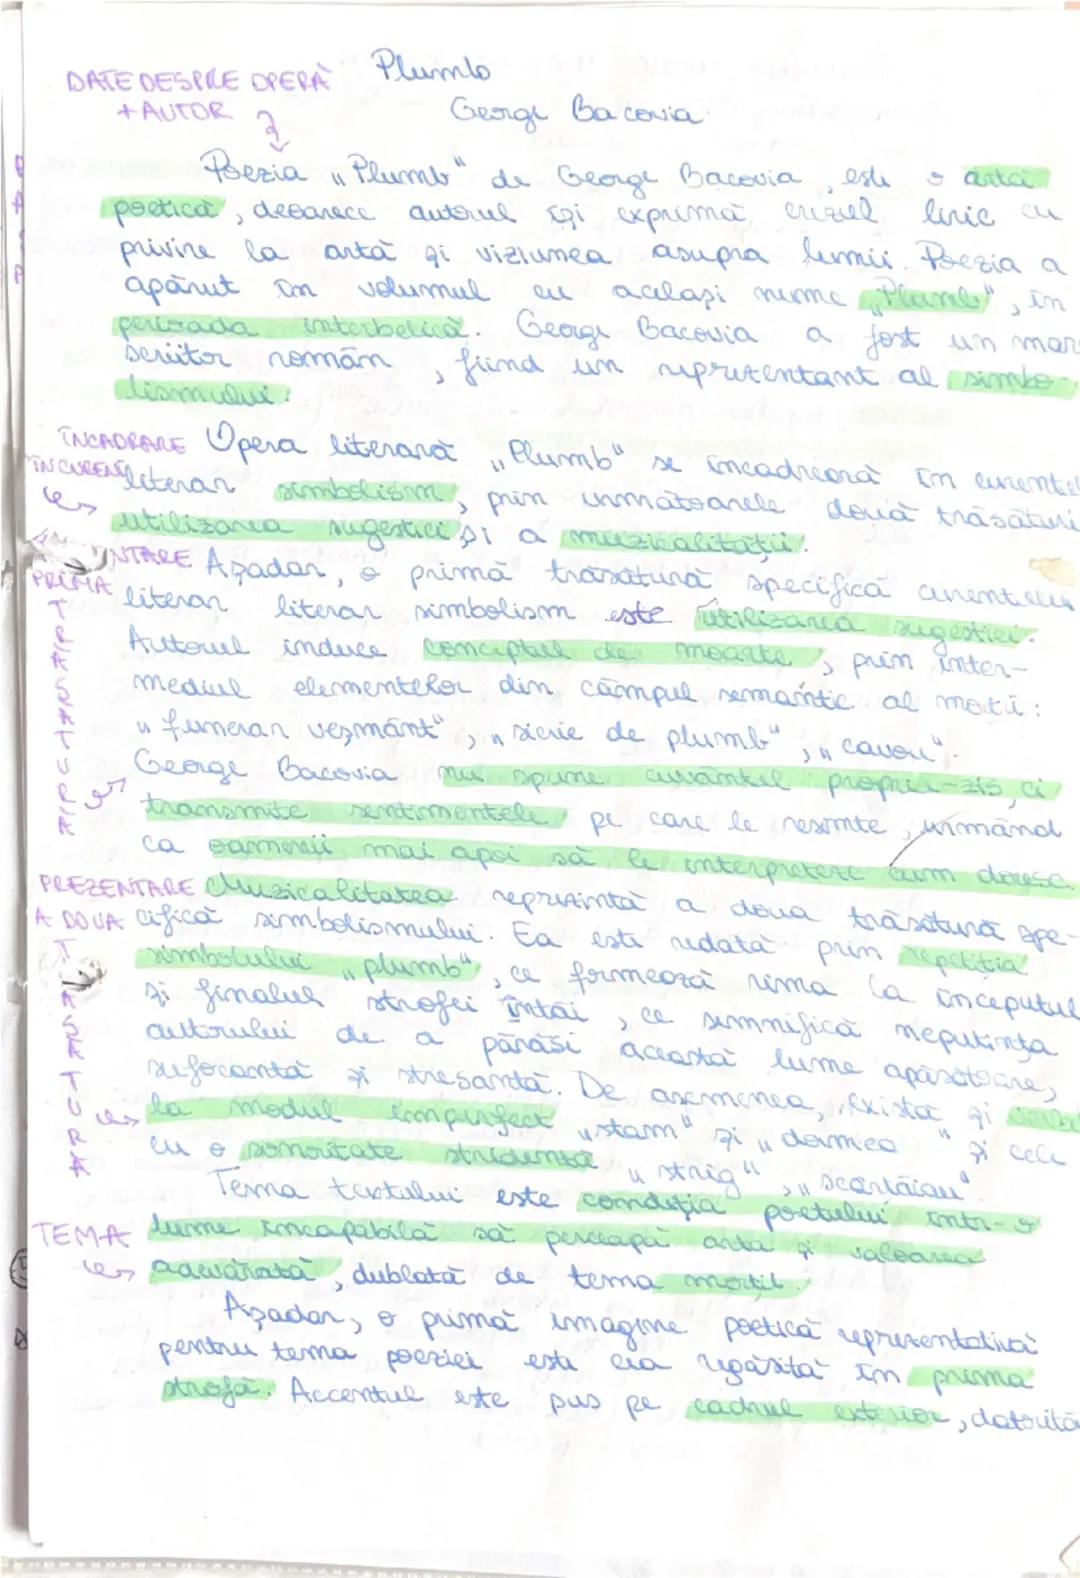 Plumb
DATE DESPRE OPERĂ
+ AUTOR
George Bacovia
Poezia „Plumb" de George Bacovia, este o artă
poetică, deoarece autorul își exprimă crezul liric cu
privire la artă și viziunea asupra lumii. Poezia a
apărut în volumul cu același nume „Plumb", în
perioada interbelică. George Bacovia a fost un mare
scriitor român, fiind un reprezentant al simbo-
lismului.
ÎNCADRARE
ÎN CURENT
Opera literară „Plumb" se încadrează în curentul
literar simbolism, prin următoarele două trăsături
utilizarea sugestiei și a muzicalității.
PRIMA
TRĂSĂTURĂ
Așadar, o primă trăsătură specifică curentului
literar literar simbolism este utilizarea sugestiei.
Autorul induce conceptul de moarte, prin inter-
mediul elementelor din câmpul semantic al morții:
„funerar vezmânt", „sicrie de plumb", „cavou".
George Bacovia nu spune cuvântul propriu-zis, ci
transmite sentimentele pe care le resimte, urmând
ca oamenii mai apoi să le interpreteze cum doresc.
PREZENTARE
A DOUA
TRĂSĂTURĂ
Muzicalitatea reprezintă a doua trăsătură spe-
cifică simbolismului. Ea este redată prin repetiția
simbolului „plumb", ce formează rima la începutul
și finalul strofei întâi, ce semnifică neputința
autorului de a părăsi această lume apăsătoare,
sufocantă și stresantă. De asemenea, există și
la modul imperfect „stam" și „dormea" și cele
cu o sonoritate stridentă „strig", „scârțâiau".
TEMA
Tema textului este condiția poetului într-o
lume incapabilă să perceapă arta și valoarea
adevărată, dublată de tema morții.
Așadar, o primă imagine poetică reprezentativă
pentru tema poeziei este cea regăsită în prima
strofă. Accentul este pus pe cadrul exterior, datorită